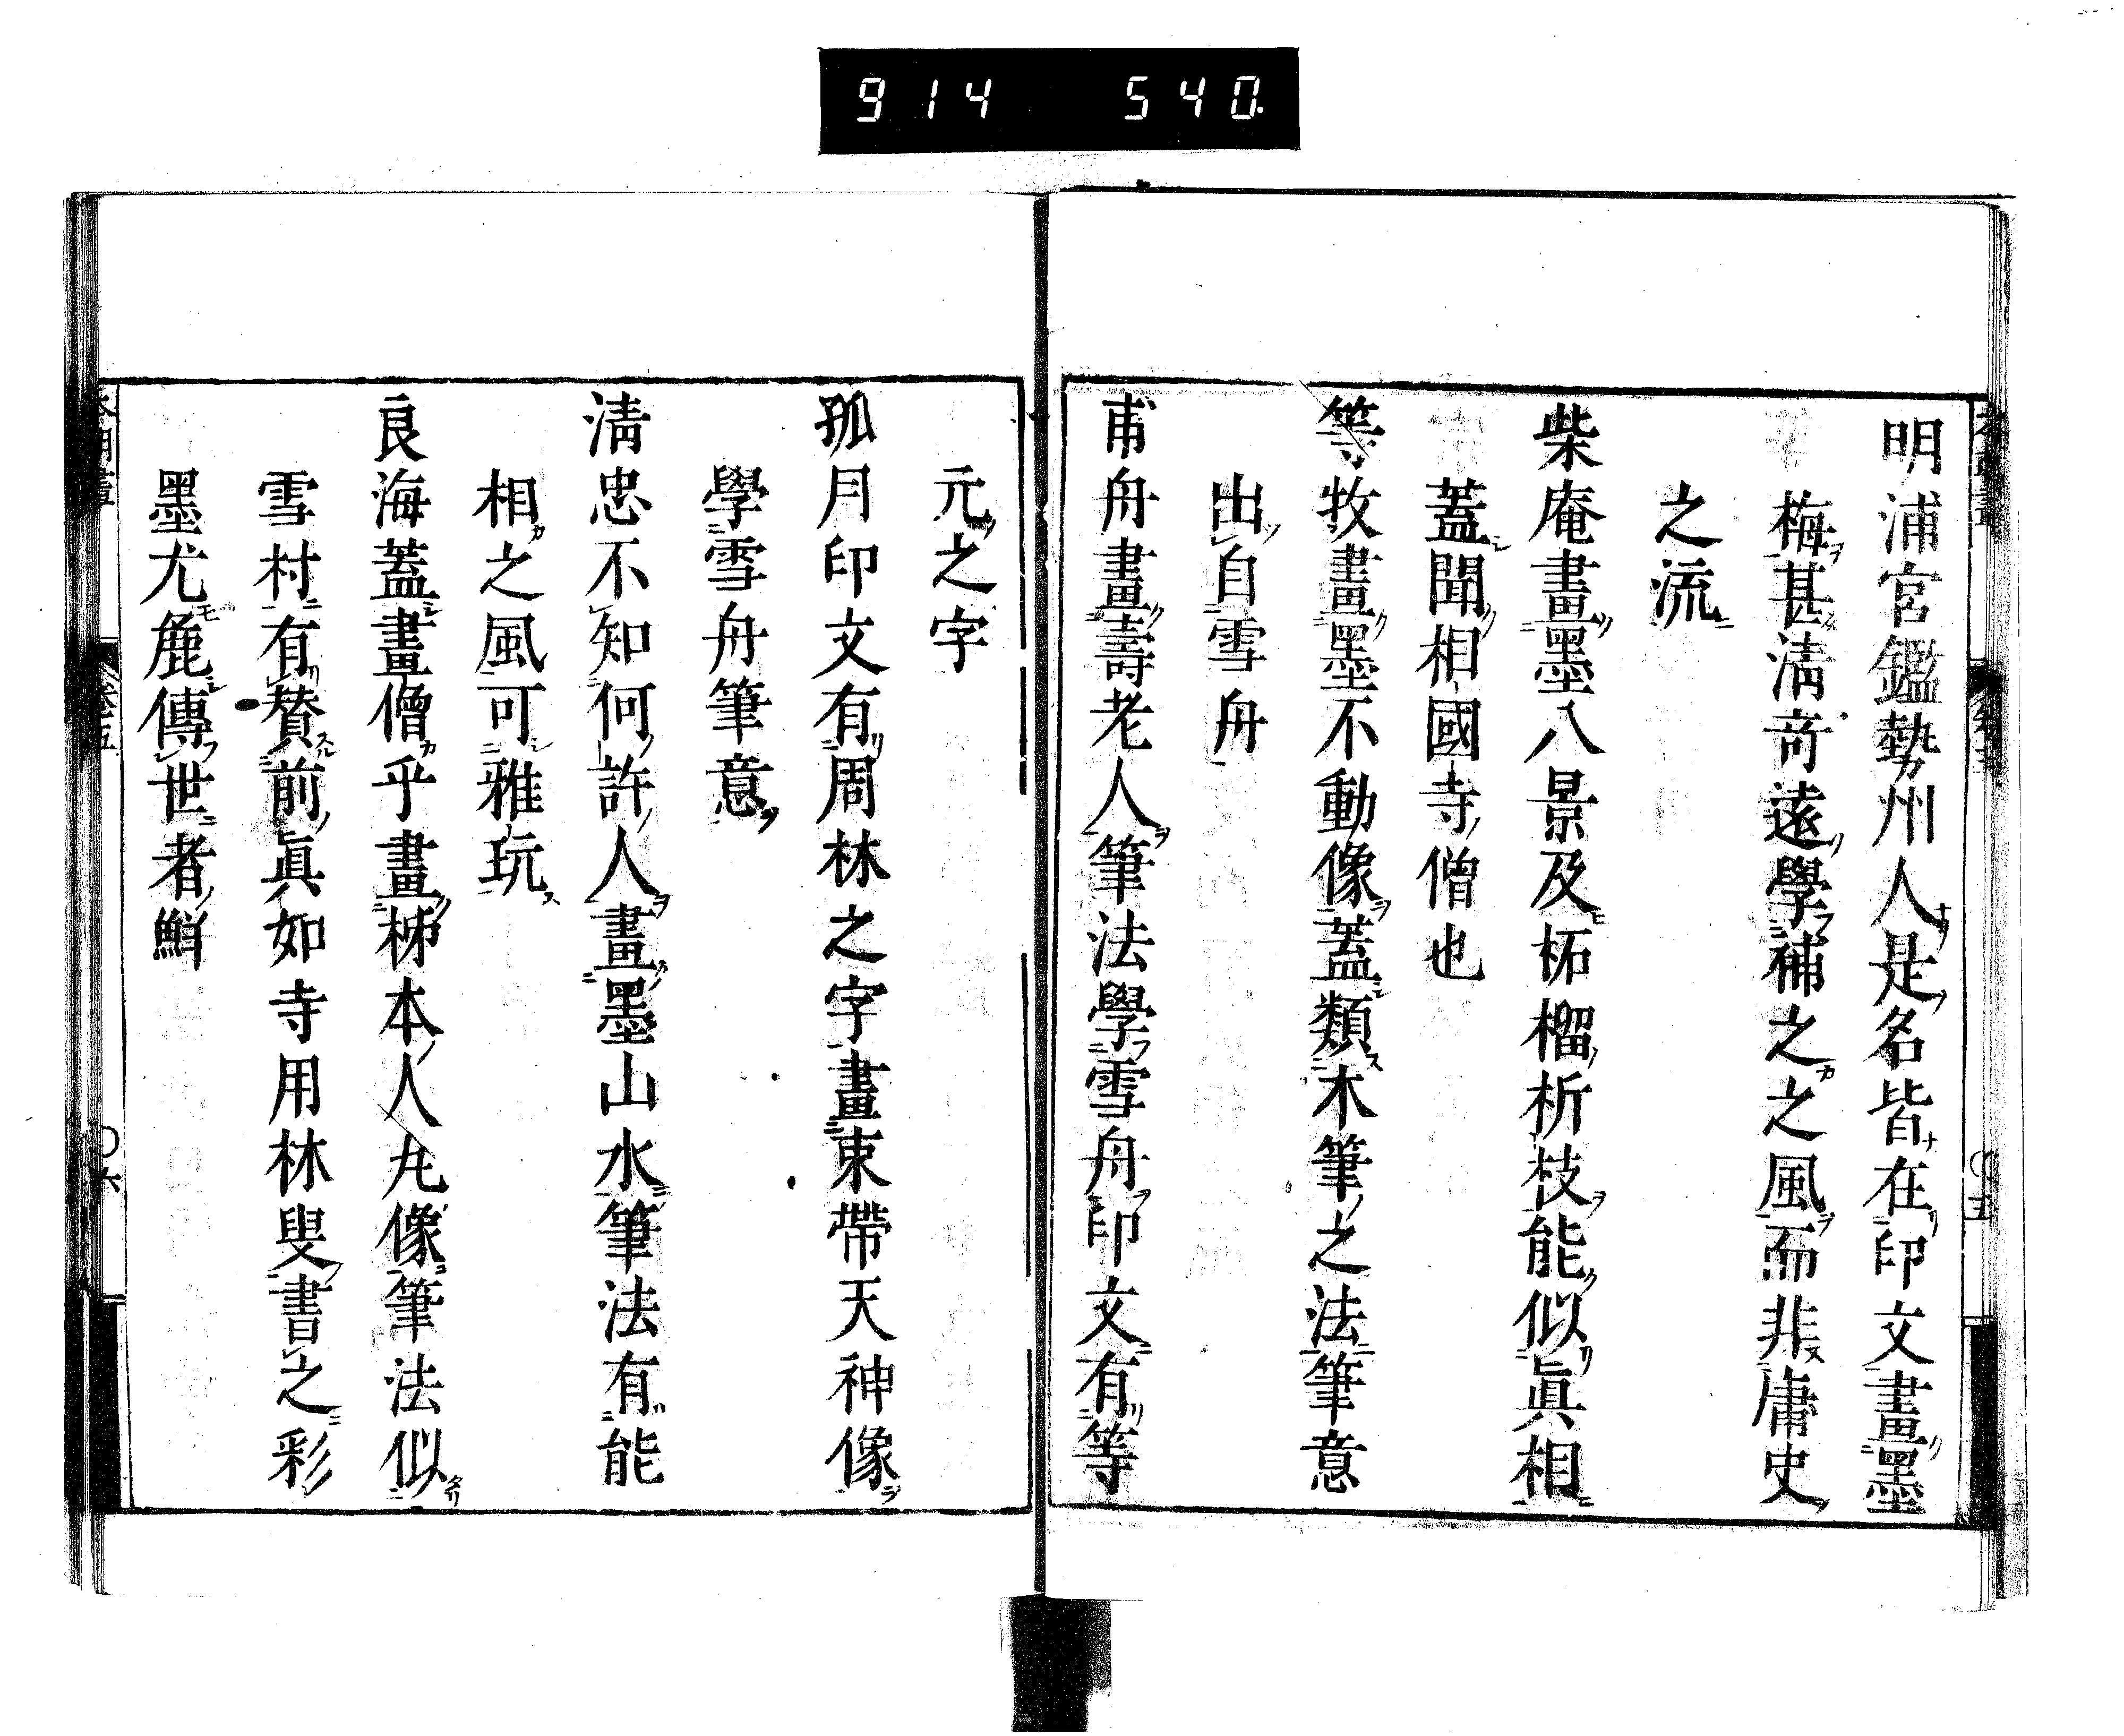 914 540
明浦宮鑑勢州人是名皆在印文畫墨
梅甚淸奇遠學補之之風而非庸史
之流
柴庵畫墨八景及柘榴折枝能似眞相
蓋聞相國寺僧也
等牧畫墨不動像蓋類木筆之法筆意
出自雪舟
甫舟畫壽老人筆法學雪舟印文有等
元之字
孤月印文有周林之字畫束帶天神像
學雪舟筆意
淸忠不知何許人畫墨山水筆法有能
相之風可雅玩
良海蓋畫僧乎畫柹本人丸像筆法似
雪村有賛前眞如寺用林叟書之彩
墨尤麁傳世者鮮
卷五
〇六